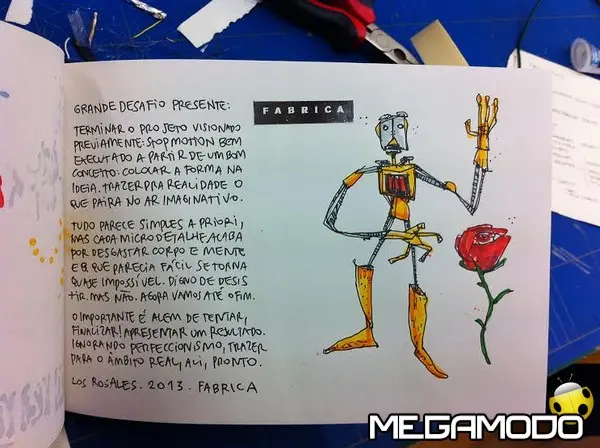 GRANDE DESAFIO PRESENTE:
TERMINAR O PROJETO VISIONADO
PREVIAMENTE: STOPMOTION BEM
EXECUTADO A PARTIR DE UM BOM
CONCEITO: COLOCAR A FORMA NA
IDEIA. TRAZER PRA REALIDADE O
QUE PAIRA NO AR IMAGINATIVO.
TUDO PARECE SIMPLES A PRIORI,
MAS CADA MICRO DETALHE ACABA
POR DESGASTAR CORPO E MENTE
E O QUE PARECIA FÁCIL SE TORNA
QUASE IMPOSSÍVEL. DIGNO DE DESIS
TIR. MAS NÃO. AGORA VAMOS ATÉ O FIM.
O IMPORTANTE É ALEM DE TENTAR,
FINALIZAR! APRESENTAR UM RESULTADO.
IGNORANDO PERFECCIONISMO, TRAZER
PARA O ÂMBITO REAL, ALI, PRONTO.
LOS ROSALES. 2013. FABRICA
FABRICA
MEGAMODO